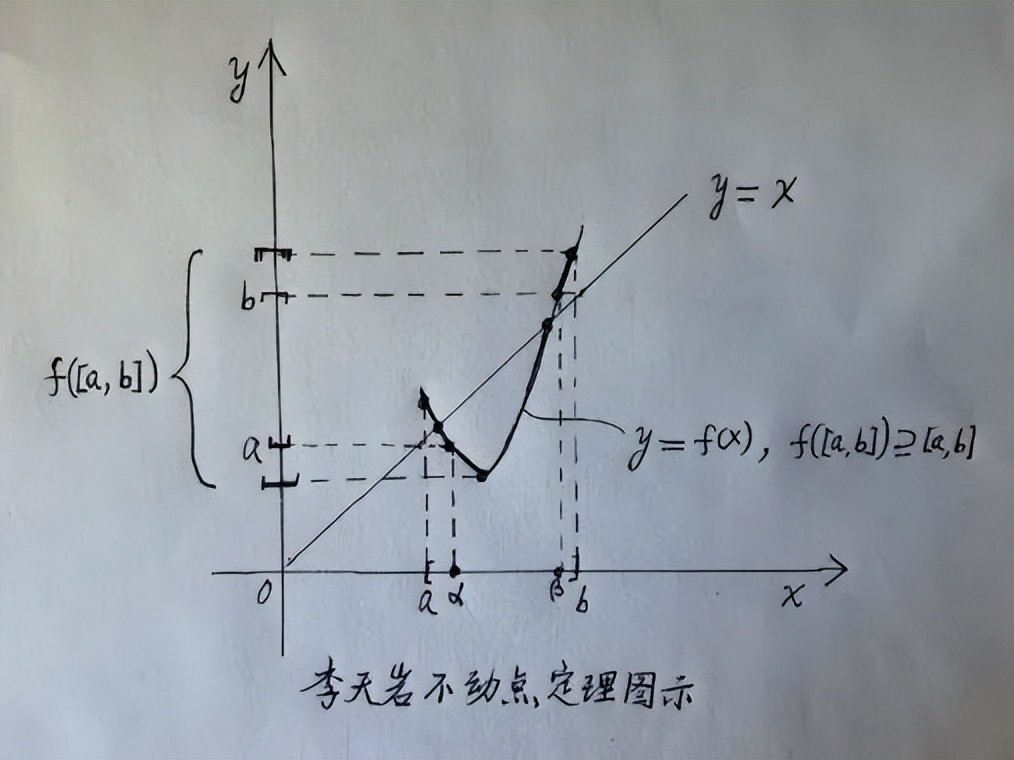 y
y = x
b
f([a, b])
a
y = f(x), f([a,b]) ⊇ [a,b]
0
a α β b
x
李天岩不动点定理图示